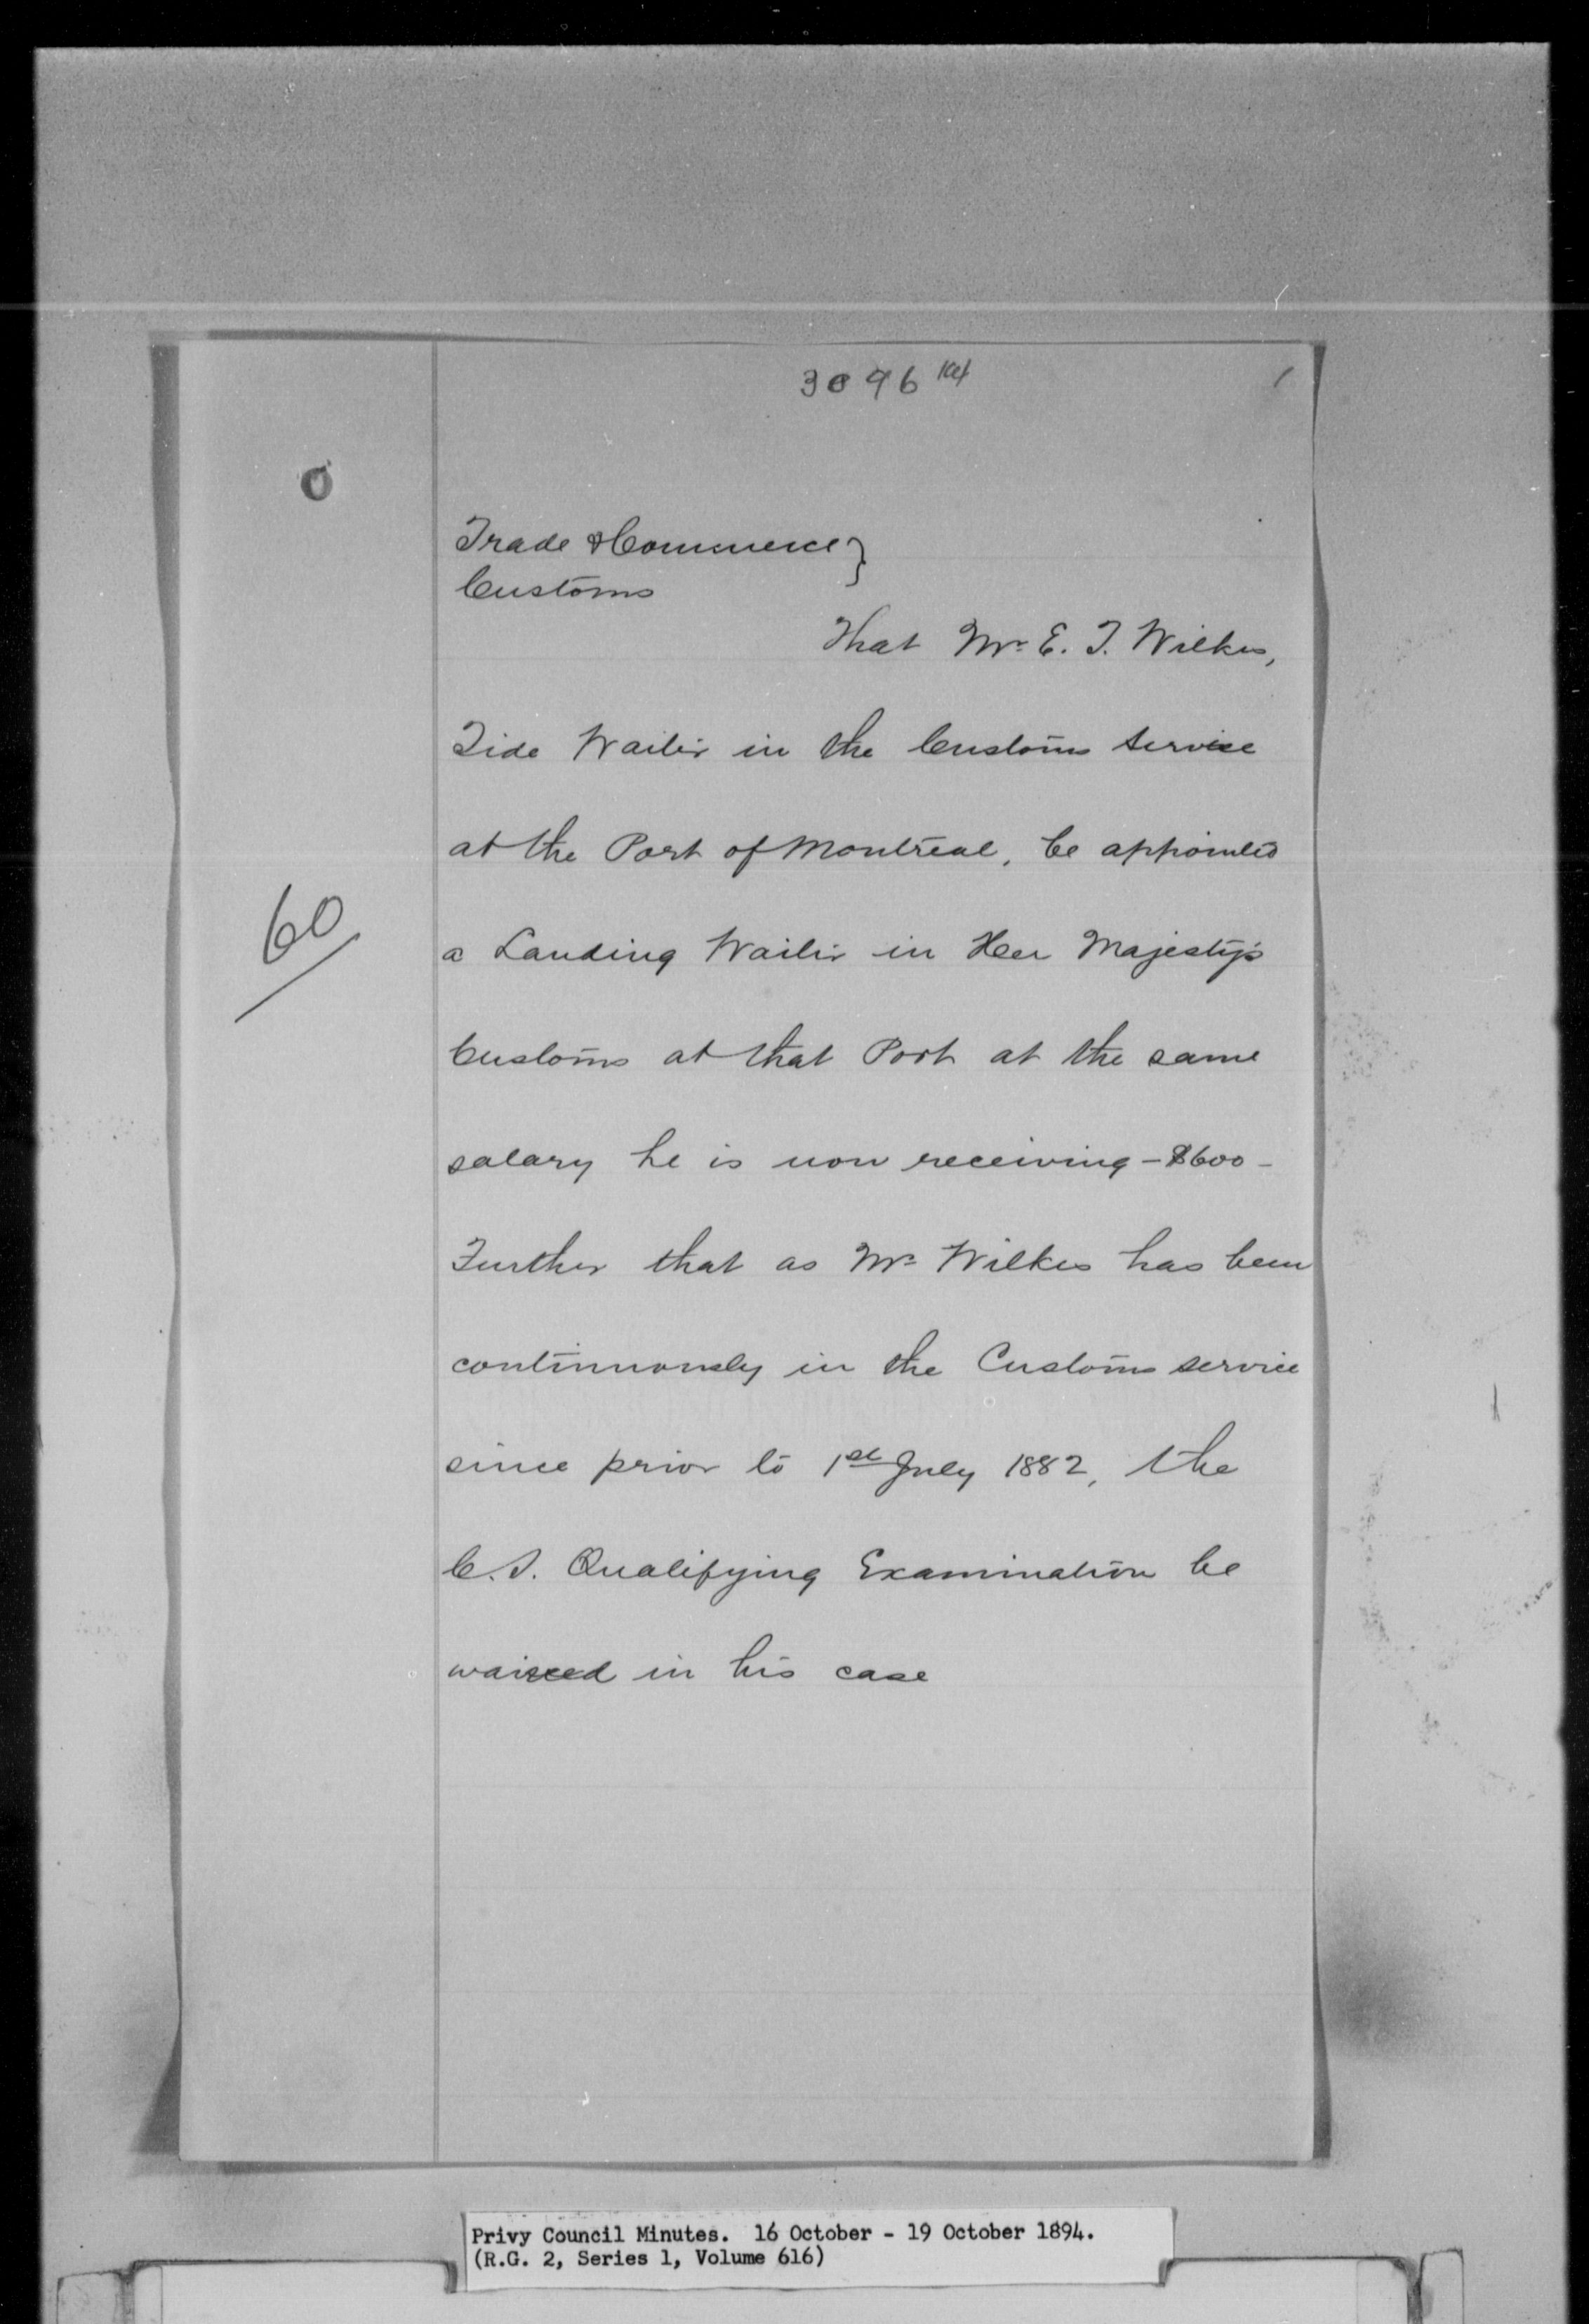 3096
O
Trade & Commerce }
Customs
That Mr. E. T. Wilkes,
Tide Waiter in the Customs service
at the Port of Montreal, be appointed
60
a Landing Waiter in Her Majesty's
Customs at that Port at the same
salary he is now receiving - $600 -
Further that as Mr. Wilkes has been
continuously in the Customs service
since prior to 1st July 1882, the
C.S. Qualifying Examination be
waived in his case
Privy Council Minutes. 16 October - 19 October 1894.
(R.G. 2, Series 1, Volume 616)